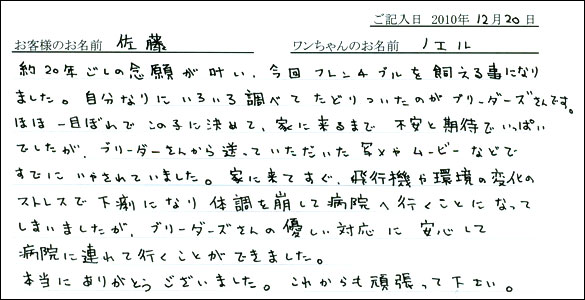 ご記入日 2010年 12月 20日
お客様のお名前 佐藤 ワンちゃんのお名前 ノエル
約20年ごしの念願が叶い、今回フレンチブルを飼える事になり
ました。自分なりにいろいろ調べてたどりついたのがブリーダーズさんです。
ほほ一目ぼれでこの子に決めて、家に来るまで 不安と期待でいっぱい
でしたが、ブリーダーさんから送っていただいた写メやムービーなどで
すでにいやされていました。家に来てすぐ、飛行機や環境の変化の
ストレスで下痢になり体調を崩して病院へ行くことになって
しまいましたが、ブリーダーズさんの優しい対応に安心して
病院に連れて行くことができました。
本当にありがとうございました。これからも頑張って下さい。